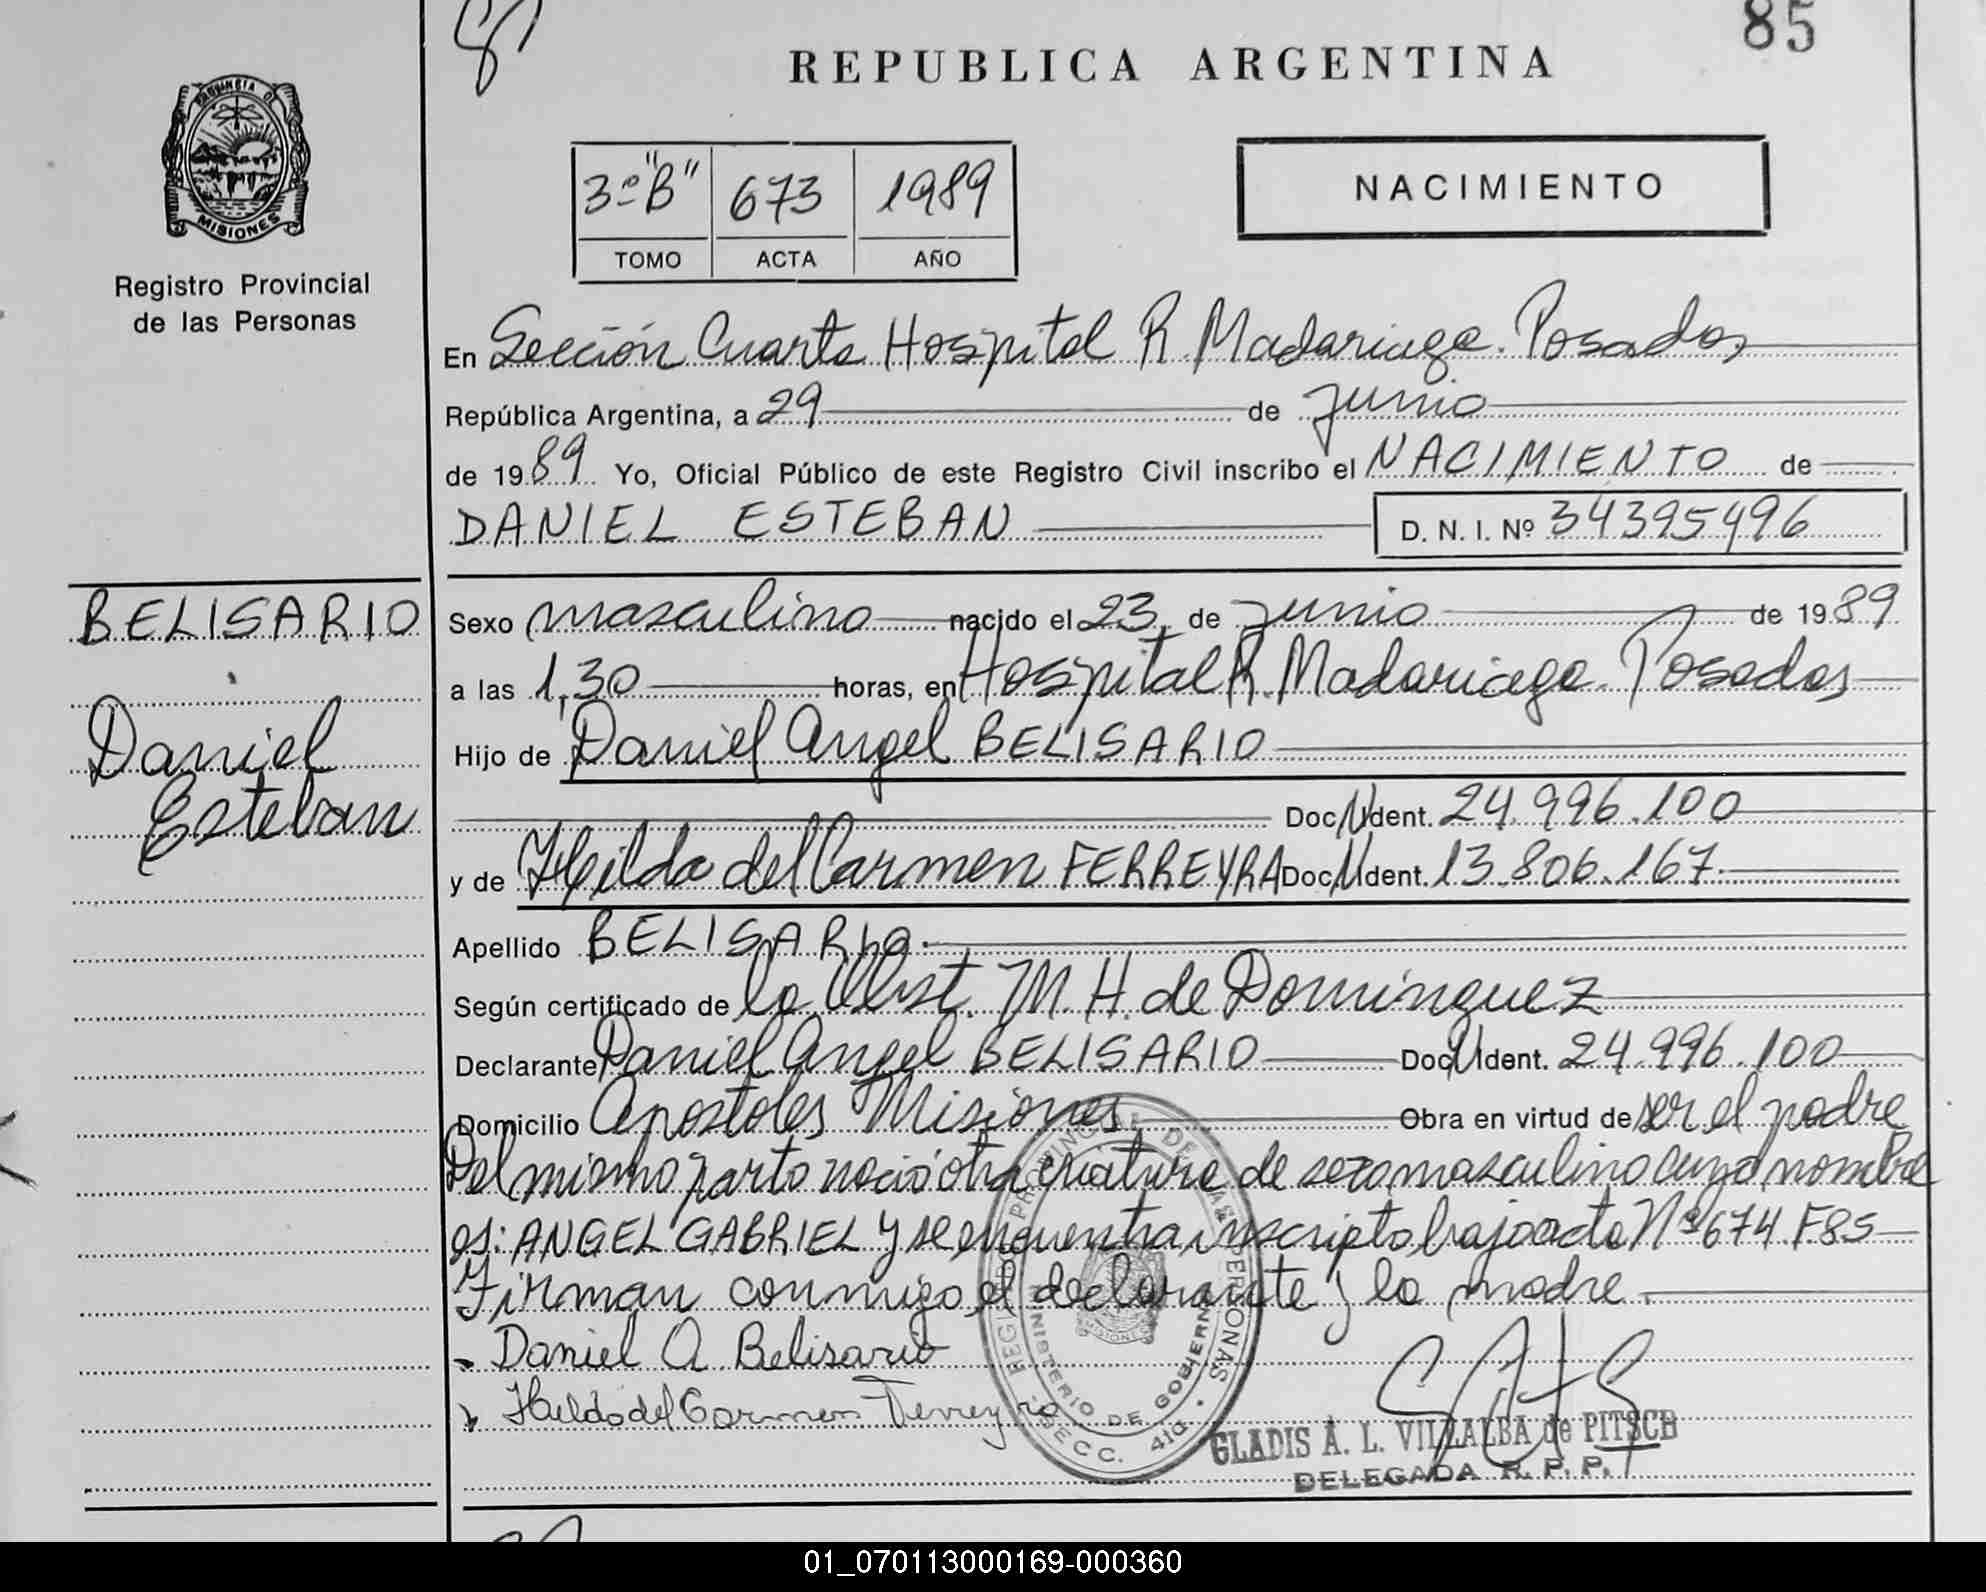 85
REPUBLICA ARGENTINA
PROVINCIA DE
MISIONES
Registro Provincial
de las Personas
3º "B" 673 1989
TOMO ACTA AÑO
NACIMIENTO
En Sección Cuarta Hospital R. Madariaga. Posadas
República Argentina, a 29 de junio
de 1989 Yo, Oficial Público de este Registro Civil inscribo el NACIMIENTO de
DANIEL ESTEBAN D. N. I. Nº 34395496
BELISARIO
Daniel
Esteban
Sexo masculino nacido el 23 de junio de 1989
a las 1,30 horas, en Hospital R. Madariaga. Posadas
Hijo de Daniel Angel BELISARIO
Doc. Ident. 24.996.100
y de Hilda del Carmen FERREYRA Doc. Ident. 13.806.167.
Apellido BELISARIO.
Según certificado de la Obst. M. H. de Dominguez
Declarante Daniel Angel BELISARIO Doc. Ident. 24.996.100
Domicilio Apostoles Misiones Obra en virtud de ser el padre
Del mismo parto nació otra criatura de sexo masculino cuyo nombre
es: ANGEL GABRIEL y se encuentra inscripto bajo acta Nº 674 F. 85
Firman conmigo, el declarante y la madre.
Daniel A Belisario
Hilda del Carmen Ferreyra
REGISTRO PROVINCIAL DE LAS PERSONAS
MINISTERIO DE GOBIERNO
MISIONES
SECC. 4ta
GLADIS A. L. VILLALBA de PITSCH
DELEGADA R. P. P.
01_070113000169-000360